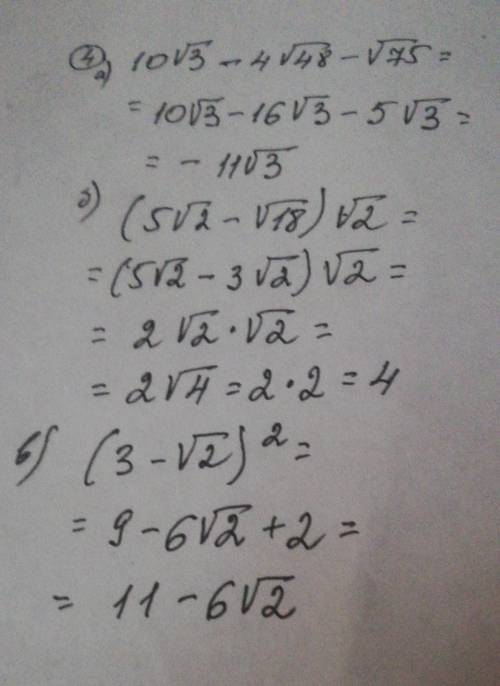 ④ а) 10√3 - 4√48 - √75 =
= 10√3 - 16√3 - 5√3 =
= - 11√3
б) (5√2 - √18) √2 =
= (5√2 - 3√2) √2 =
= 2√2 · √2 =
= 2√4 = 2 · 2 = 4
в) (3 - √2)² =
= 9 - 6√2 + 2 =
= 11 - 6√2